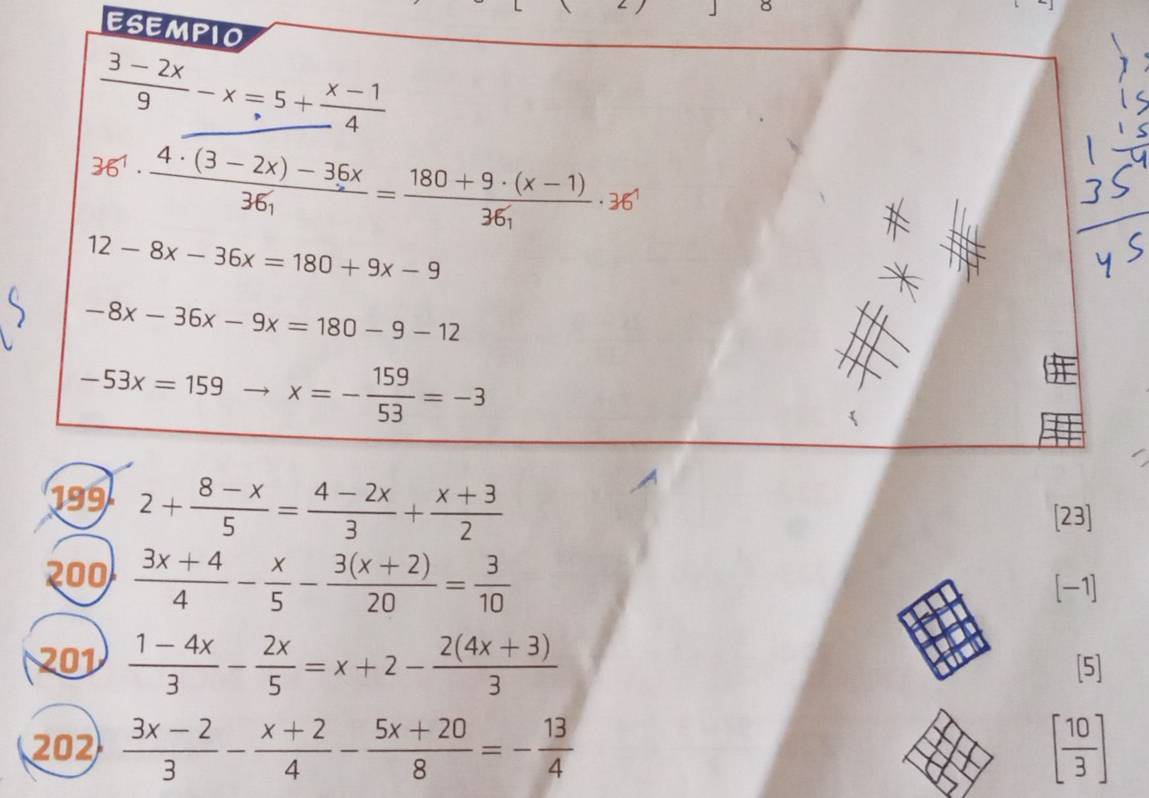 ESEMPIO
\frac{3 - 2x}{9} - x = 5 + \frac{x - 1}{4}
36¹ · \frac{4 · (3 - 2x) - 36x}{36₁} = \frac{180 + 9 · (x - 1)}{36₁} · 36¹
12 - 8x - 36x = 180 + 9x - 9
-8x - 36x - 9x = 180 - 9 - 12
-53x = 159 → x = -\frac{159}{53} = -3
199. 2 + \frac{8 - x}{5} = \frac{4 - 2x}{3} + \frac{x + 3}{2} [23]
200. \frac{3x + 4}{4} - \frac{x}{5} - \frac{3(x + 2)}{20} = \frac{3}{10} [-1]
201. \frac{1 - 4x}{3} - \frac{2x}{5} = x + 2 - \frac{2(4x + 3)}{3} [5]
202. \frac{3x - 2}{3} - \frac{x + 2}{4} - \frac{5x + 20}{8} = -\frac{13}{4} [\frac{10}{3}]
15
35
45